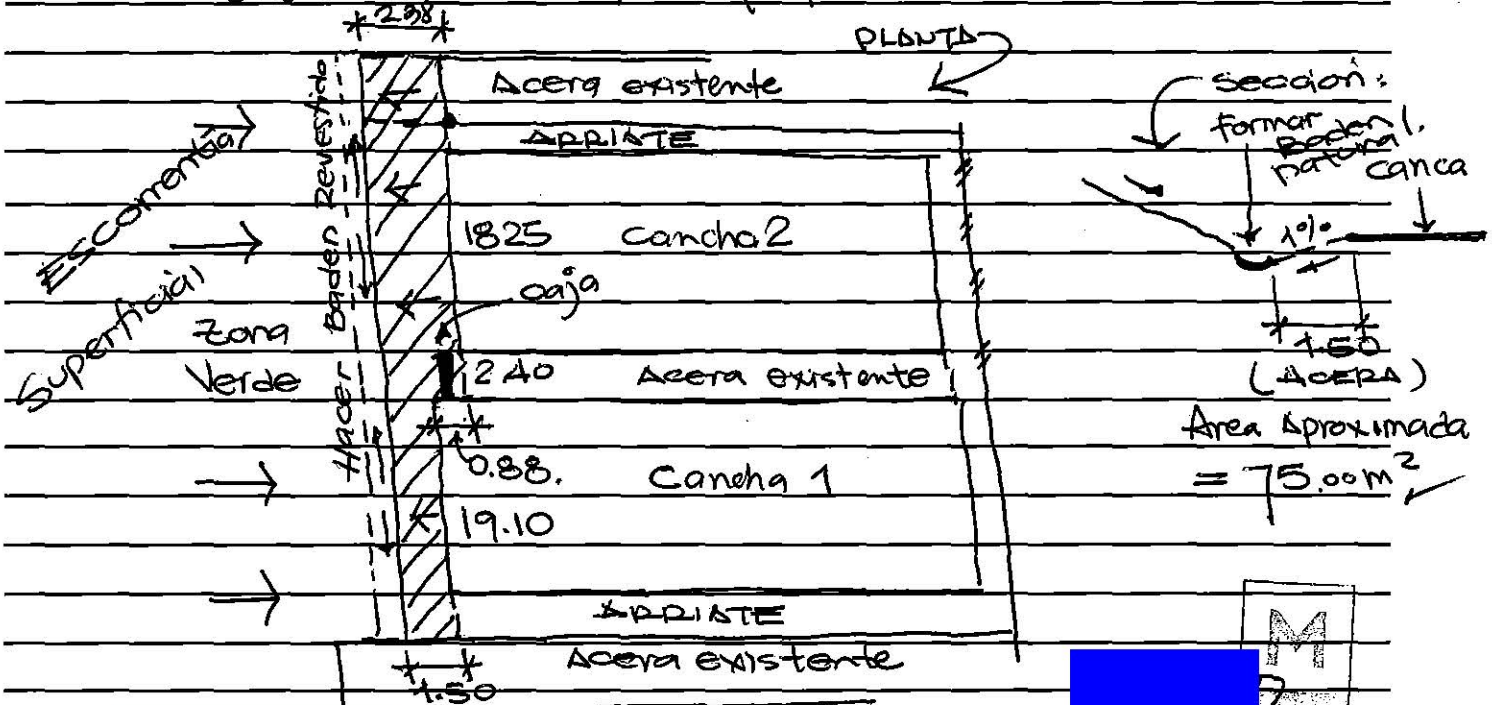 2.38
PLANTA
Acera existente
ARRIATE
Escorrentía
Superficial
Zona
Verde
Hacer Baden Revestido
1825 cancha 2
caja
2.40 Acera existente
0.88.
Cancha 1
19.10
ARRIATE
Acera existente
1.50
sección:
formar
Baden
natural.
canca
1%
1.50
(ACERA)
Area Aproximada
= 75.00 m²
M